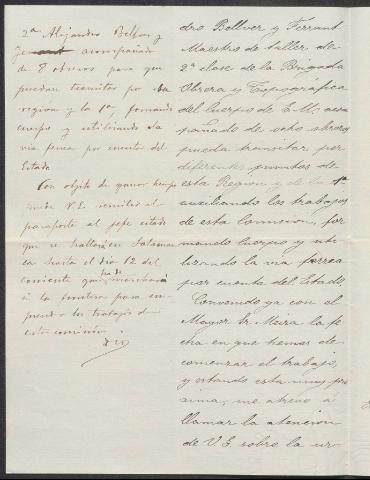 2ª Alejandro Bellver y
Ferrant acompañado
de 8 obreros para que
puedan transitar por esta
region y la 1ª, formando
cuerpo y utilizando la
via ferrea por cuenta del
Estado
Con objeto de ganar tiempo
puede V.E. remitir el
pasaporte al jefe citado
que se hallará en Salaman
ca hasta el dia 12 del
corriente que ha de marchar
á la frontera para em
prender los trabajos de
esta comisión
dro Bellver y Ferrant
Maestro de taller de
2ª clase de la Brigada
Obrera y Topográfica
del Cuerpo de E.M. acom
pañado de ocho obreros
pueda transitar por
diferentes puntos de
esta Region y de la 1ª
auxiliando los trabajos
de esta Comision, for
mando cuerpo y uti
lizando la via ferrea
por cuenta del Estado.
Convenido ya con el
Mayor Sr. Meira la fe
cha en que hemos de
comenzar el trabajo,
y estando esta muy pro
xima, me atrevo á
llamar la atencion
de V.E. sobre la ur-